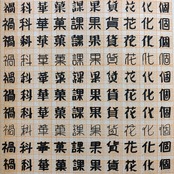 禍科華菓課果貨花化個
禍科華菓課果貨花化個
禍科華菓課果貨花化個
禍科華菓課果貨花化個
禍科華菓課果貨花化個
禍科華菓課果貨花化個
禍科華菓課果貨花化個
禍科華菓課果貨花化個
禍科華菓課果貨花化個
禍科華菓課果貨花化個